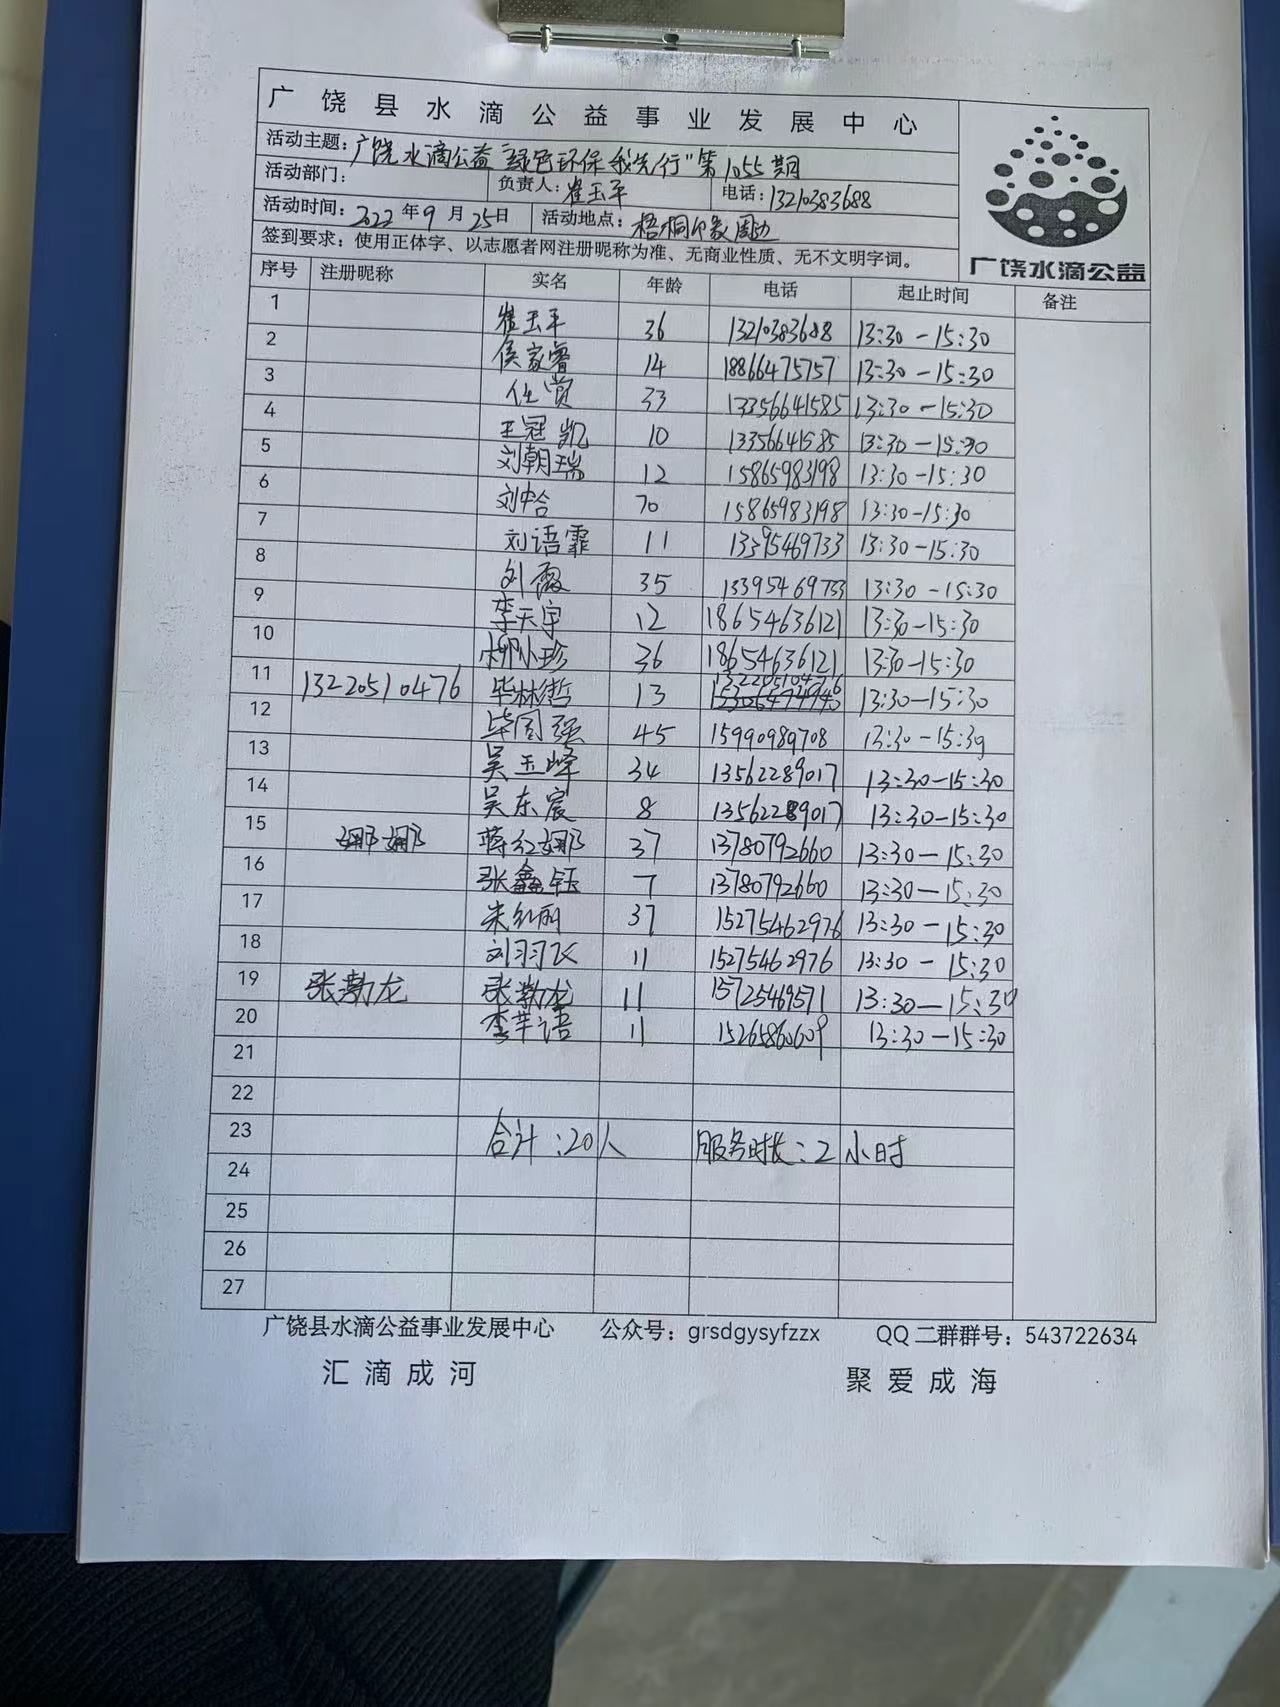 广饶县水滴公益事业发展中心
活动主题：广饶水滴公益"绿色环保我先行"第1055期
活动部门： 负责人：崔玉平 电话：13210383688
活动时间：2022年9月25日 活动地点：梧桐印象周边
签到要求：使用正体字、以志愿者网注册昵称为准、无商业性质、无不文明字词。
广饶水滴公益
序号 注册昵称 实名 年龄 电话 起止时间 备注
1 崔玉平 36 13210383688 13:30-15:30
2 侯家睿 14 18866475757 13:30-15:30
3 任赏 33 13356641585 13:30-15:30
4 王冠凯 10 13356641585 13:30-15:30
5 刘朝瑞 12 15865983198 13:30-15:30
6 刘中合 70 15865983198 13:30-15:30
7 刘语霏 11 13395469733 13:30-15:30
8 刘霞 35 13395469733 13:30-15:30
9 李天宇 12 18654636121 13:30-15:30
10 柳小珍 36 18654636121 13:30-15:30
11 13220510476 毕林哲 13 13220510476 13:30-15:30
12 毕同强 45 15990989708 13:30-15:30
13 吴玉峰 34 13562289017 13:30-15:30
14 吴东宸 8 13562289017 13:30-15:30
15 娜娜 蒋红娜 37 13780792660 13:30-15:30
16 张鑫钰 7 13780792660 13:30-15:30
17 朱红丽 37 15275462976 13:30-15:30
18 刘羽飞 11 15275462976 13:30-15:30
19 张勃龙 张勃龙 11 15725469571 13:30-15:30
20 李芊语 11 15265860609 13:30-15:30
21
22
23 合计：20人 服务时长：2小时
24
25
26
27
广饶县水滴公益事业发展中心 公众号：grsdgysyfzzx QQ二群群号：543722634
汇滴成河 聚爱成海